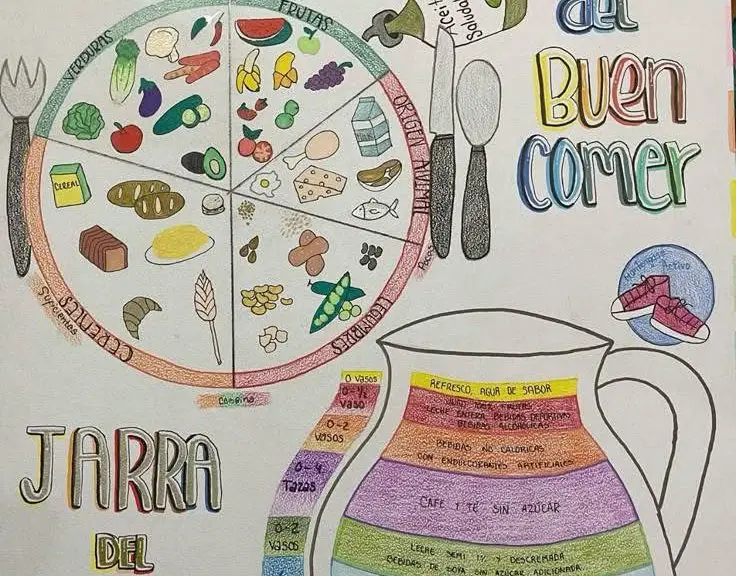 del
Buen
comer
Aceite
Saludable
VERDURAS
FRUTAS
ORIGEN ANIMAL
Pocos
LEGUMBRES
Combina
CEREALES
Suficientes
CEREAL
Activo
0 vasos
0-½
vaso
0-2
vasos
0-4
Tazas
0-2
vasos
REFRESCO, AGUA DE SABOR
LECHE ENTERA, BEBIDAS DEPORTIVAS
BEBIDAS ALCOHOLICAS
BEBIDAS NO CALORICAS
CON ENDULCORANTES ARTIFICIALES
CAFE Y TÉ SIN AZÚCAR
LECHE SEMI 1% Y DESCREMADA
BEBIDAS DE SOYA SIN AZÚCAR ADICIONADA
JARRA
DEL